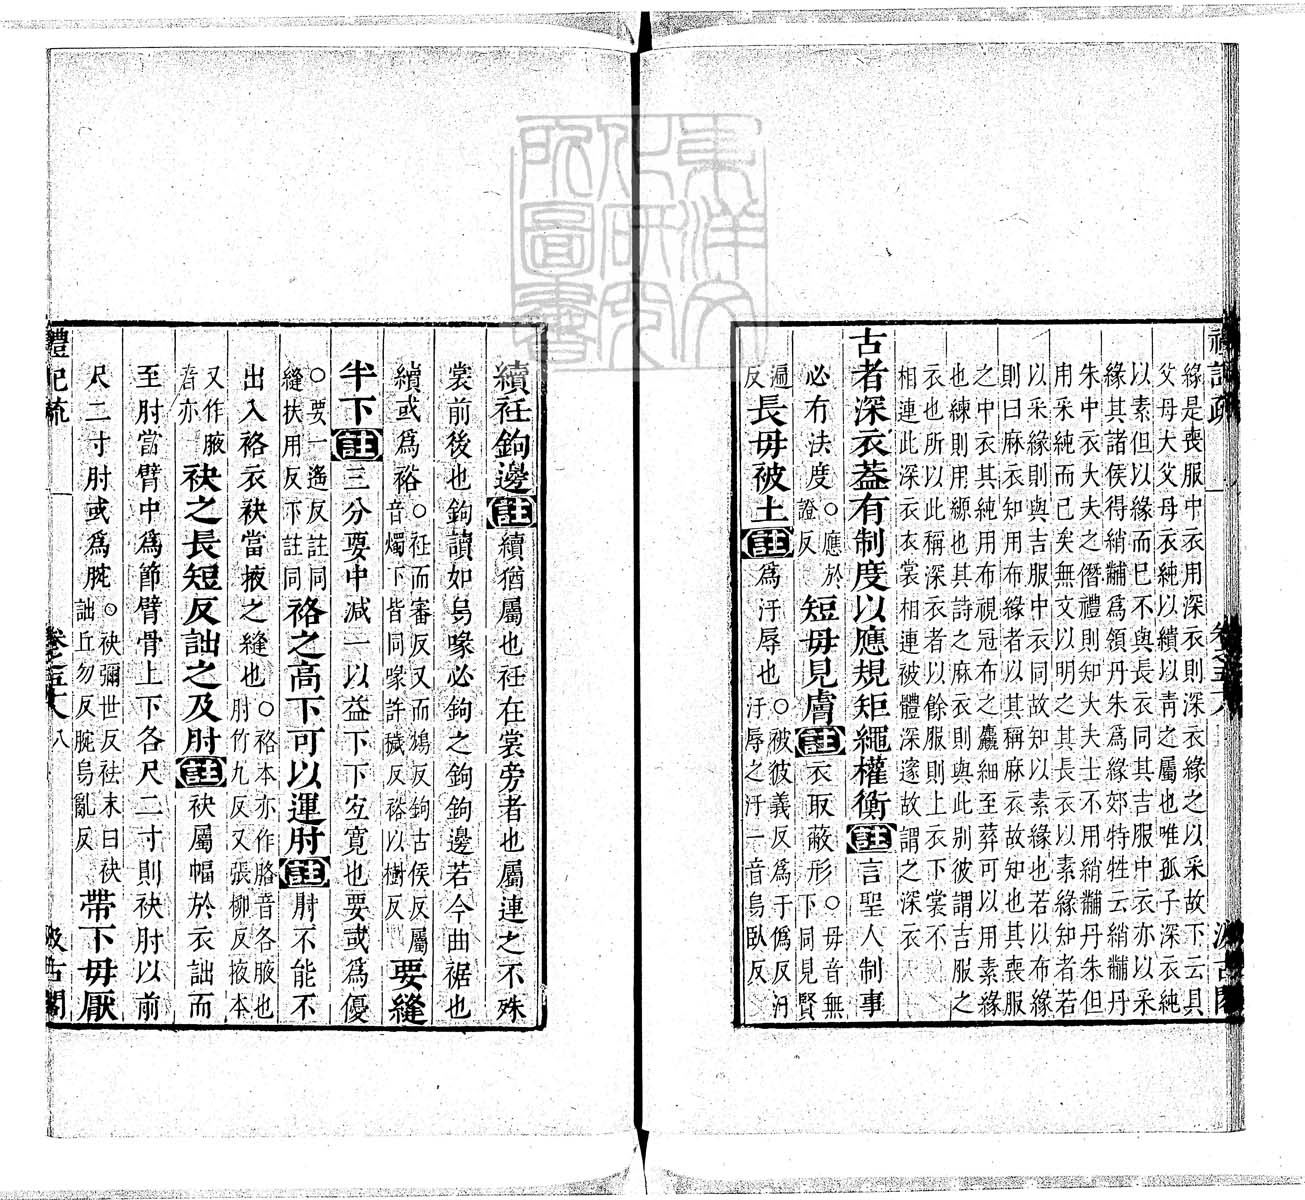 緣是喪服中衣用深衣則深衣緣之以采故下云具
父母大父母衣純以繢以青之屬也唯孤子深衣純
以素但以緣而已不與長衣同其吉服中衣亦以采
緣其諸侯得綃黼爲領丹朱爲緣郊特牲云綃黼丹
朱中衣大夫之僭禮則知大夫士不用綃黼丹朱但
用采純而已矣無文以明之其長衣以素緣知者若
以采緣則與吉服中衣同故知以素緣也若以布緣
則曰麻衣知用布緣者以其稱麻衣故知也其喪服
之中衣其純用布視冠布之麤細至葬可以用素緣
也練則用縓也其詩之麻衣則與此别彼謂吉服之
衣也所以此稱深衣者以餘服則上衣下裳不
相連此深衣衣裳相連被體深邃故謂之深衣
古者深衣葢有制度以應規矩繩權衡註言聖人制事
必有法度○應於證反短毋見膚註衣取蔽形○毋音無下同見賢
遍反長毋被土註爲汙辱也○被彼義反爲于僞反汙辱之汙一音烏臥反
續衽鉤邊註續猶屬也衽在裳旁者也屬連之不殊
裳前後也鉤讀如鳥喙必鉤之鉤鉤邊若今曲裾也
續或爲裕○衽而審反又而鴆反鉤古侯反屬音燭下皆同喙許穢反裕以樹反要縫
半下註三分要中减一以益下下宐寛也要或爲優
○要一遙反註同縫扶用反下註同袼之高下可以運肘註肘不能不
出入袼衣袂當掖之縫也○袼本亦作胳音各腋也肘竹九反又張柳反掖本
又作腋音亦袂之長短反詘之及肘註袂屬幅於衣詘而
至肘當臂中爲節臂骨上下各尺二寸則袂肘以前
尺二寸肘或爲腕○袂彌世反袪末曰袂詘丘勿反腕烏亂反帶下毋厭
禮記疏 卷五十八 八 汲古閣